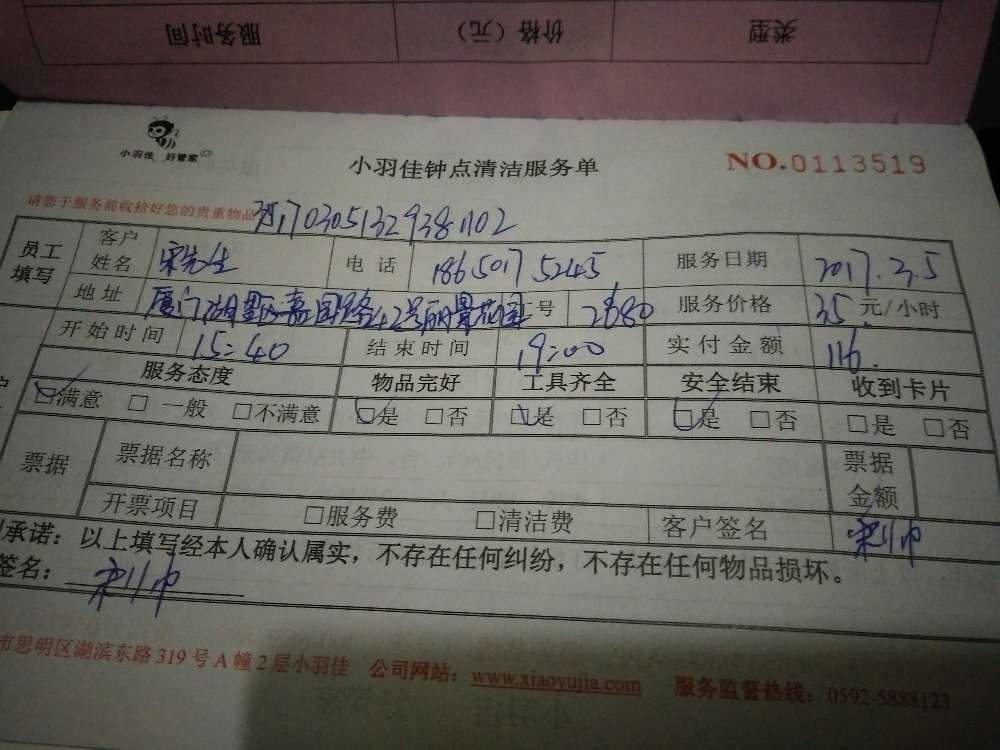 类型 价格（元） 服务时间
小羽佳 好管家
小羽佳钟点清洁服务单
NO.0113519
请您于服务前收拾好您的贵重物品
员工填写 客户姓名 宋先生 电话 18650175245 服务日期 2017.3.5
地址 厦门湖里区嘉园路42号丽景花园 号 服务价格 35元/小时
开始时间 15:40 结束时间 19:00 实付金额 116.
服务态度 物品完好 工具齐全 安全结束 收到卡片
□满意 □一般 □不满意 □是 □否 □是 □否 □是 □否 □是 □否
票据 票据名称 票据金额
开票项目 □服务费 □清洁费 客户签名
承诺：以上填写经本人确认属实，不存在任何纠纷，不存在任何物品损坏。
签名：
市思明区湖滨东路319号A幢2层小羽佳 公司网站：www.xiaoyujia.com 服务监督热线：0592-5888123